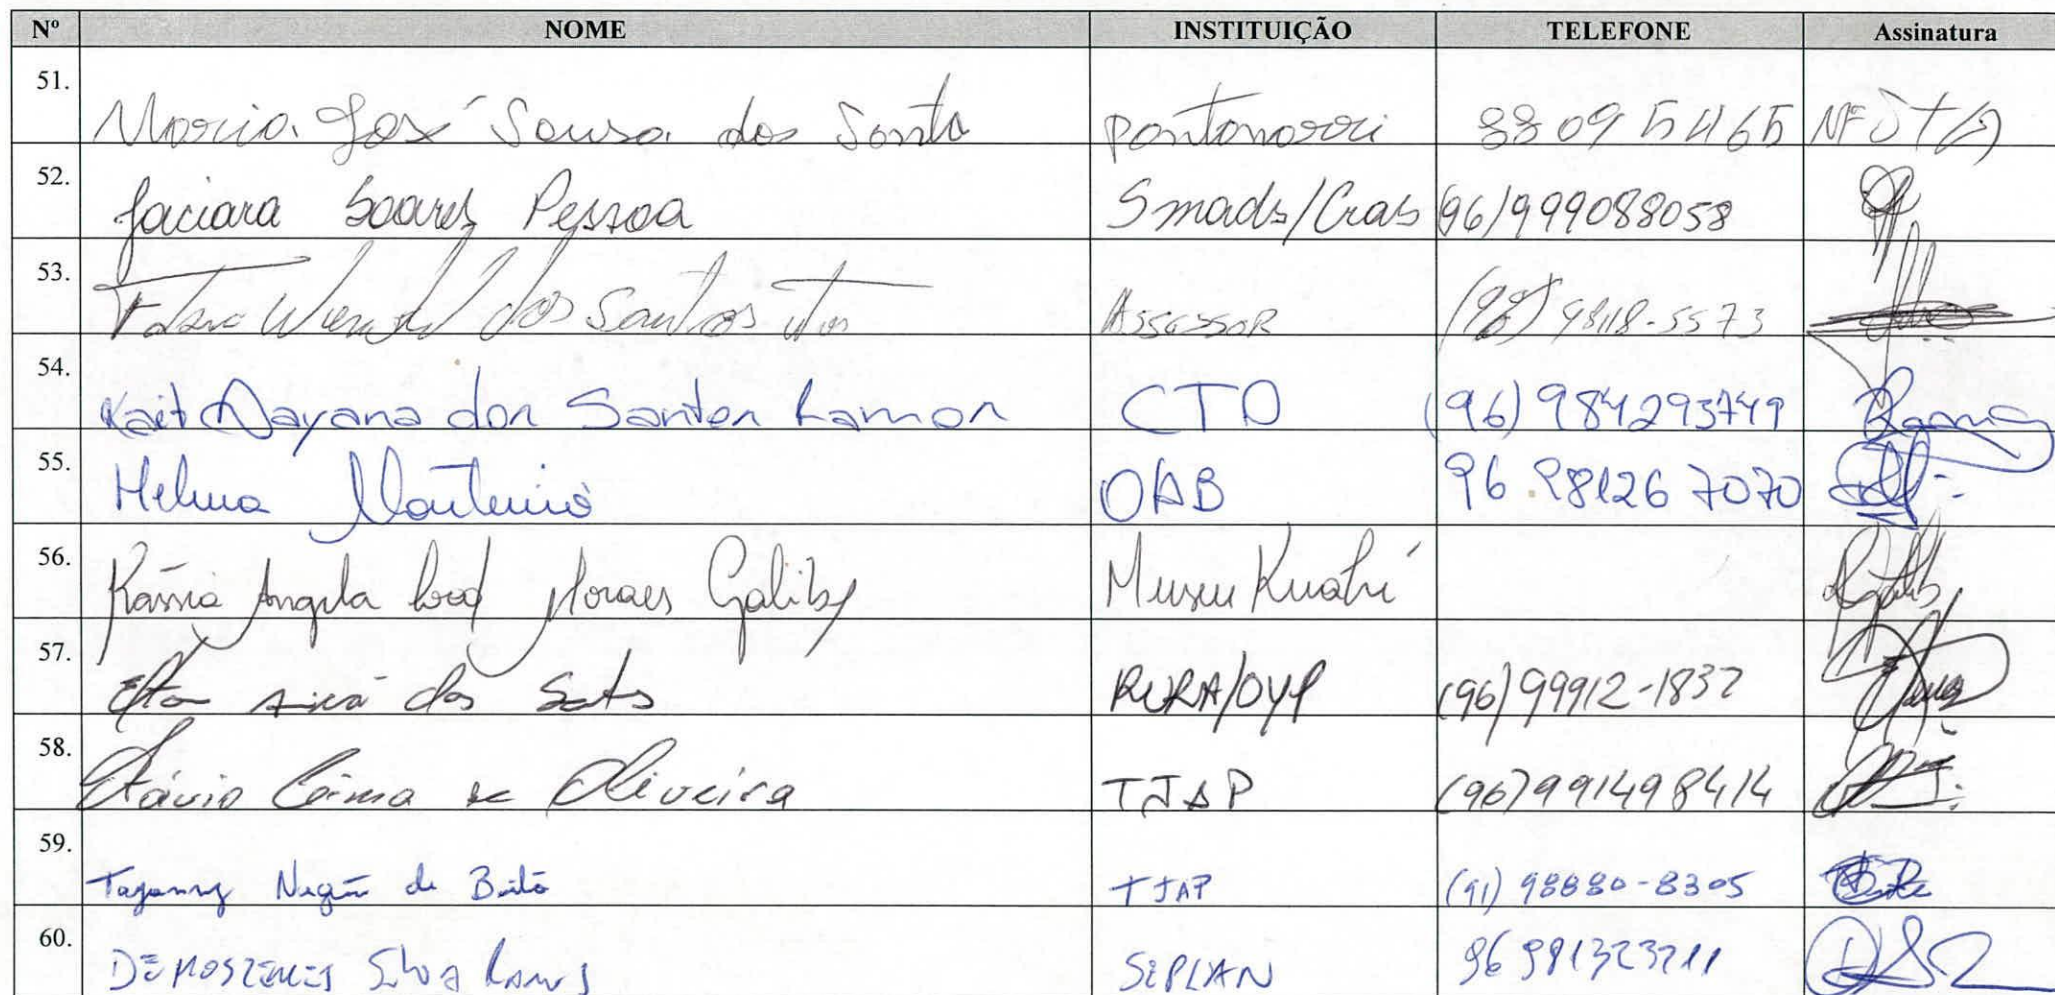 Nº NOME INSTITUIÇÃO TELEFONE Assinatura
51. Maria José Sousa dos Santo pontonarri
52. Jaciara Soares Pessoa Smads/Cras (96)999088058
53. dos Santos Assessor
54. Kait Nayana dos Santos Ramos CTD (96) 984293749
55. Helma Monteiro OAB 96 981267070
56. Kássia Angela Lood Moraes Galiby Museu Kuahí
57. dos (96) 99912-1837
58. Flávio Lima de Oliveira TJAP (96)991498414
59. de Brito TJAP (91) 98880-8305
60. DEMOSTENES Silva Ramos SEPLAN 96 981323211